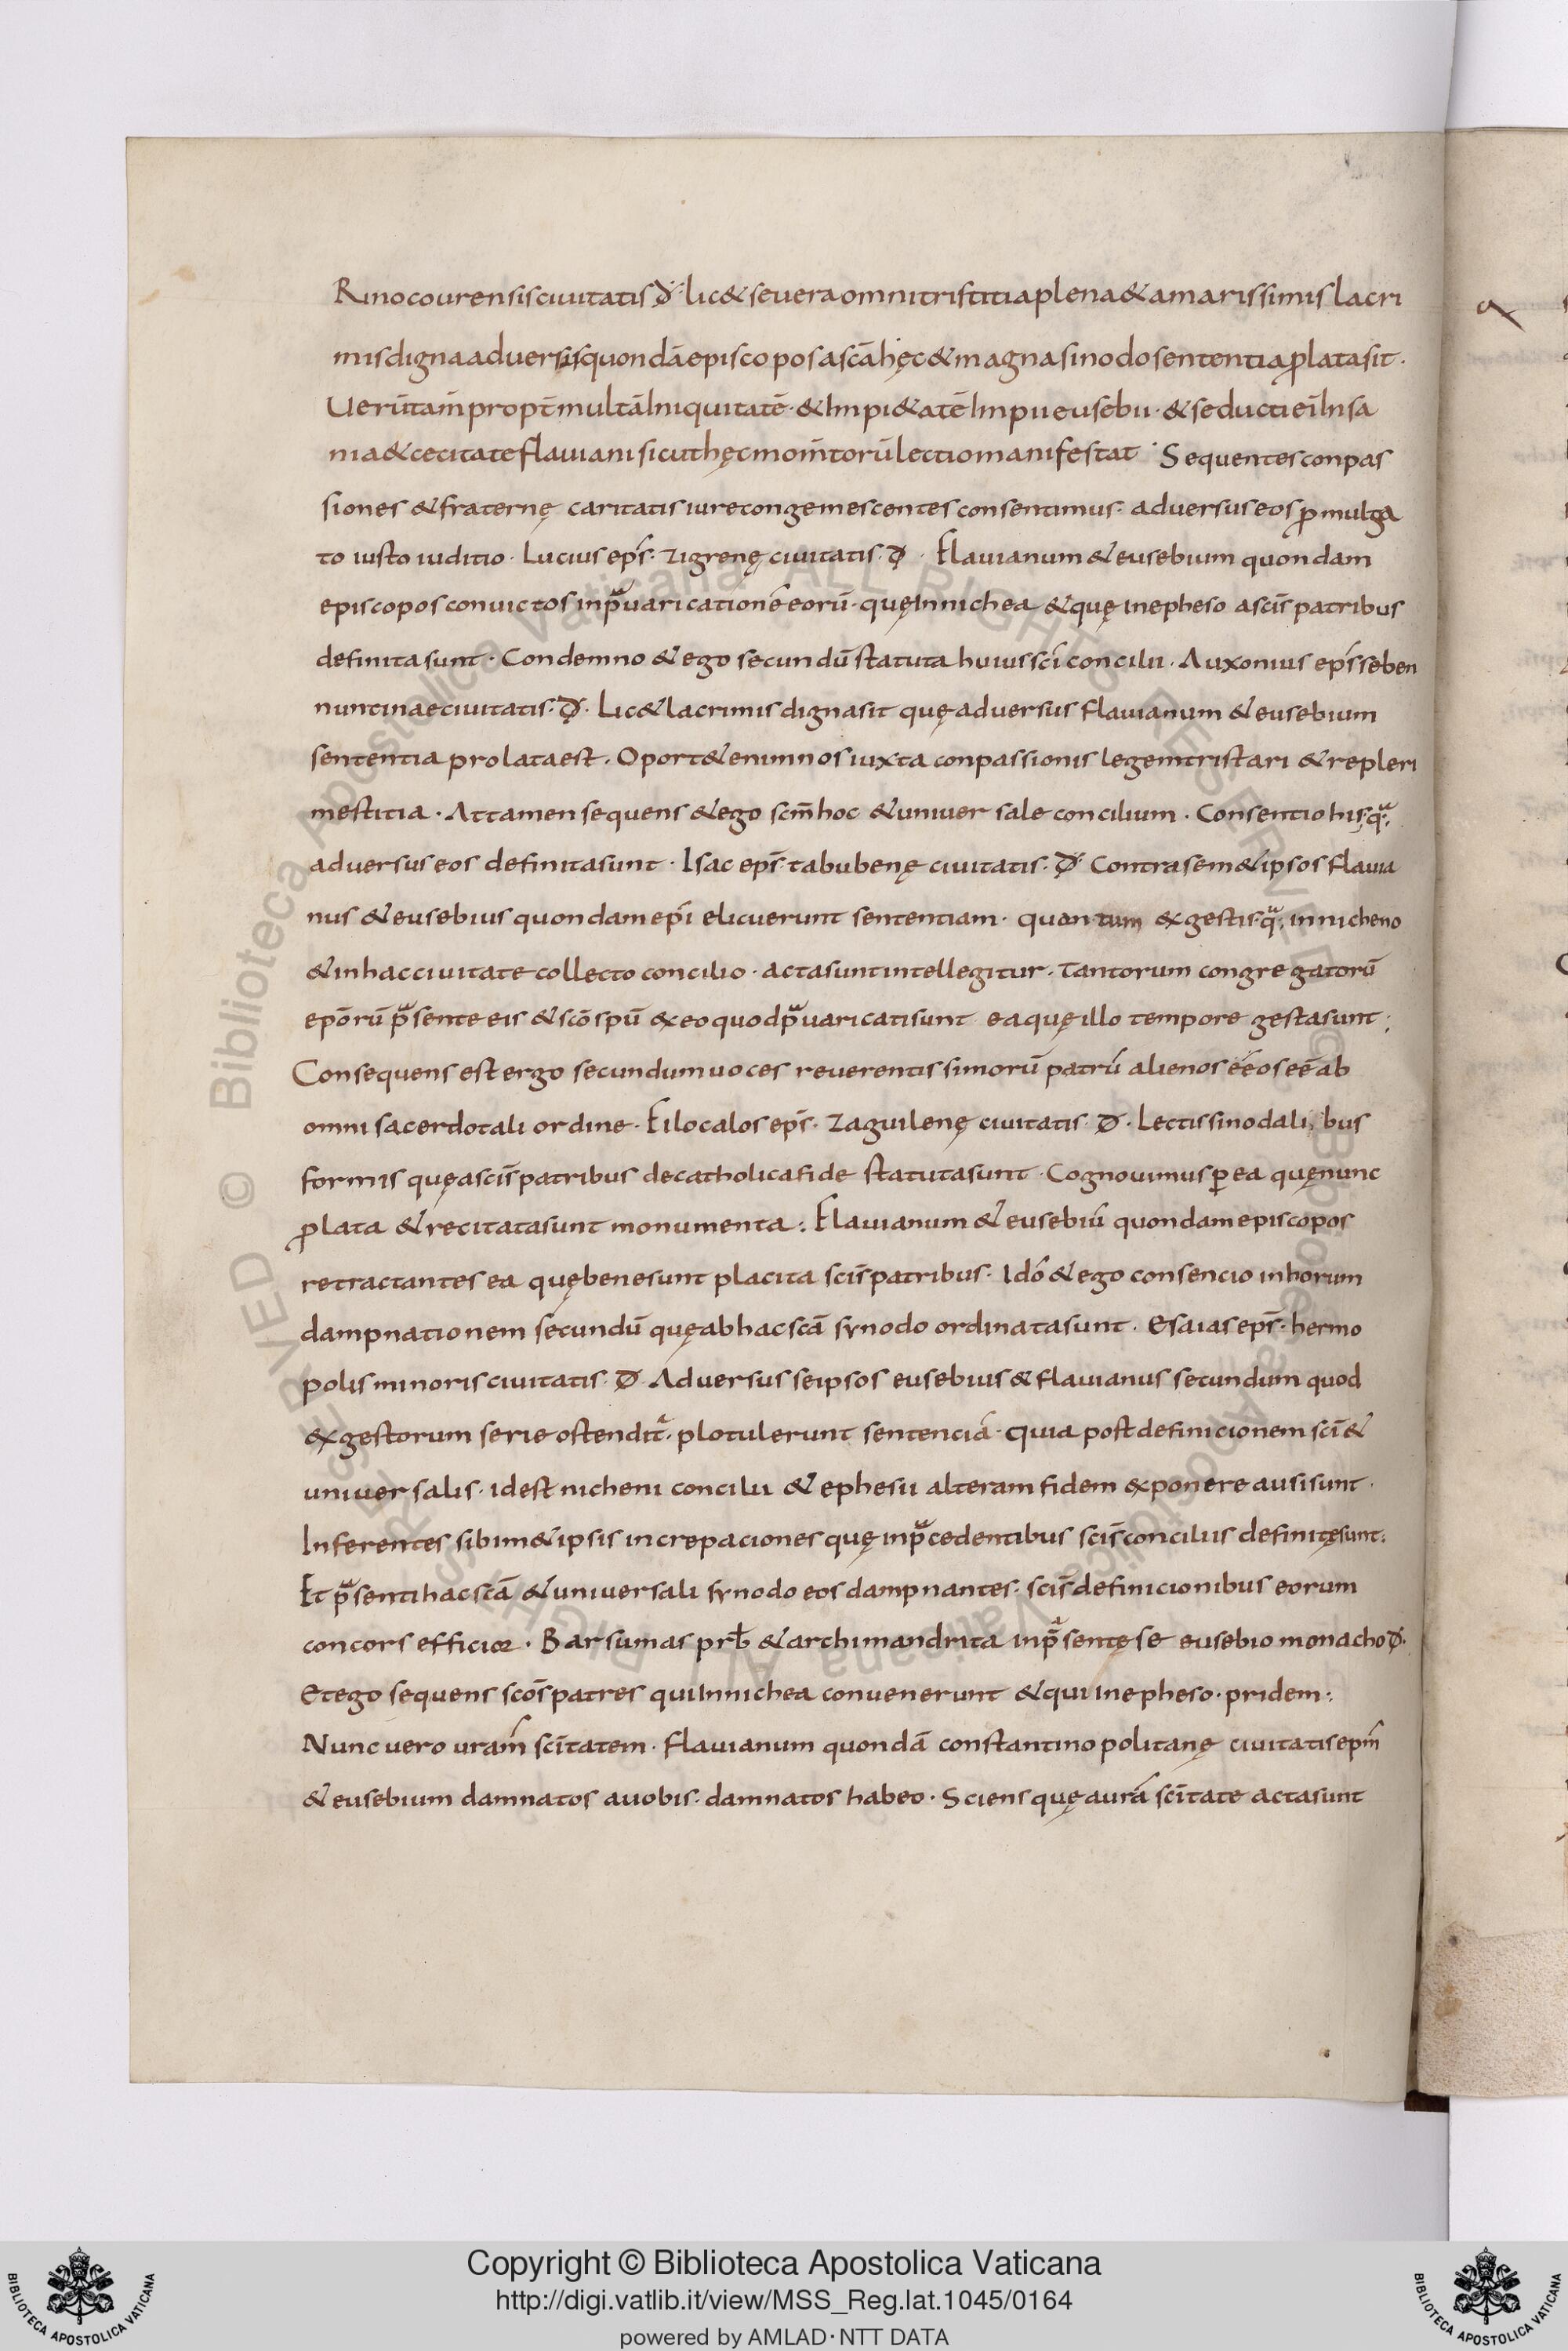 Rinocourensis ciuitatis đ· lic& seuera omni tristitia plena & amarissimis lacri
mis digna aduersus quondā episcopos a scā hęc & magna sinodo sententia ꝓlata sit·
Uerūtam̄ propt̄ multā Iniquitatē· & Impi&atē Impii eusebii· & seducti eī Insa
nia & cecitate flauiani sicut hęc moīm̄torū lectio manifestat· Sequentes conpas
siones & fraternę caritatis iure congemescentes consentimus· aduersus eos ꝓmulga
to iusto iuditio· Lucius ep̄s· zigrenę ciuitatis· đ· Flauianum & eusebium quondam
episcopos conuictos in p̄uaricationē eorū· quę In nichea & quę in epheso a sc̄is patribus
definita sunt· Condemno & ego secundū statuta huius sc̄i concilii· Auxonius ep̄s seben
nuntinae ciuitatis· đ· Lic& lacrimis digna sit quę aduersus flauianum & eusebium
sententia prolata est· Oport& enim nos iuxta conpassionis legem tristari & repleri
mestitia· Attamen sequens & ego sc̄m hoc & uniuersale concilium· Consentio his· q̄·
aduersus eos definita sunt· Isac ep̄s· tabubenę ciuitatis· đ· Contra sem&ipsos flauia
nus & eusebius quondam ep̄i elicuerunt sententiam· quantum ex gestis· q̄· in nicheno
& in hac ciuitate collecto concilio· acta sunt intellegitur· Tantorum congregatorū
ep̄orū p̄sente eis & sc̄o sp̄u ex eo quod p̄uaricati sunt ea quę illo tempore gesta sunt;
Consequens est ergo secundum uoces reuerentissimorū patrū alienos ēē os ēē ab
omni sacerdotali ordine· Filocalos ep̄s· zaguilenę ciuitatis· đ· Lectis sinodalibus
formis quę a sc̄is patribus de catholica fide statuta sunt· Cognouimus ꝑ ea quę nunc
ꝓlata & recitata sunt monumenta: Flauianum & eusebiū quondam episcopos
retractantes ea quę bene sunt placita sc̄is patribus· Idō & ego consencio in horum
dampnationem secundū quę ab hac scā synodo ordinata sunt· Esaias ep̄s· hermo
polis minoris ciuitatis· đ· Aduersus seipsos eusebius & flauianus secundum quod
ex gestorum serie ostendit̄· plotulerunt sentenciā· quia post definicionem sc̄i &
uniuersalis· id est nicheni concilii & ephesii alteram fidem exponere ausi sunt·
Inferentes sibim&ipsis increpaciones quę in p̄cedentibus sc̄is conciliis definitę sunt:
Et p̄senti hac scā & uniuersali synodo eos dampnantes· sc̄is definicionibus eorum
concors efficior· Barsumas prb̄ & archimandrita in p̄sentę se eusebio monacho đ·
Et ego sequens sc̄os patres qui In nichea conuenerunt & qui in epheso· pridem:
Nunc uero uram̄ sc̄itatem· flauianum quondā constantinopolitanę ciuitatis ep̄m
& eusebium damnatos a uobis· damnatos habeo· Sciens quę a urā sc̄itate acta sunt
Copyright © Biblioteca Apostolica Vaticana
http://digi.vatlib.it/view/MSS_Reg.lat.1045/0164
powered by AMLAD·NTT DATA